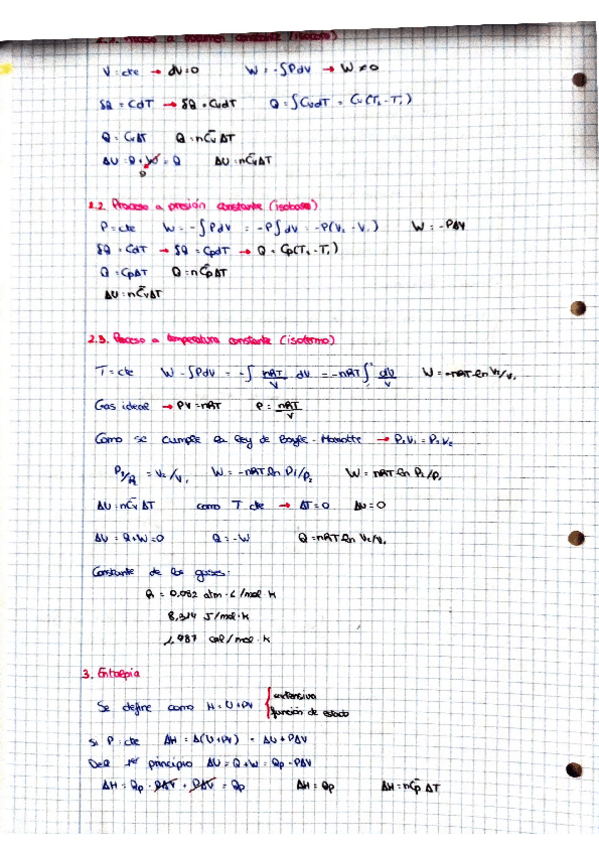 2.1. Proceso a volumen constante (isocoro)
V = cte → dV = 0 W = -∫PdV → W ≠ 0
δQ = CdT → δQ = CvdT Q = ∫CvdT = Cv(T₂ - T₁)
Q = CvΔT Q = nC̄vΔT
ΔU = Q + W = Q ΔU = nC̄vΔT
0
2.2. Proceso a presión constante (isobara)
P = cte W = -∫PdV = -P∫dV = -P(V₂ - V₁) W = -PΔV
δQ = CdT → δQ = CpdT → Q = Cp(T₂ - T₁)
Q = CpΔT Q = nC̄pΔT
ΔU = nC̄vΔT
2.3. Proceso a temperatura constante (isotermo)
T = cte W = -∫PdV = -∫ nRT/V dV = -nRT∫ dV/V W = -nRT ln V₂/V₁
Gas ideal → PV = nRT P = nRT/V
Como se cumple la ley de Boyle-Mariotte → P₁V₁ = P₂V₂
P₁/P₂ = V₂/V₁ W = -nRT ln P₁/P₂ W = nRT ln P₂/P₁
ΔU = nC̄vΔT como T cte → ΔT = 0 ΔU = 0
ΔU = Q + W = 0 Q = -W Q = nRT ln V₂/V₁
Constante de los gases:
R = 0,082 atm·L/mol·K
8,314 J/mol·K
1,987 cal/mol·K
3. Entalpia
Se define como H = U + PV { extensiva
función de estado
Si P = cte ΔH = Δ(U + PV) = ΔU + PΔV
Del 1er principio ΔU = Q + W = Qp - PΔV
ΔH = Qp - PΔV + PΔV = Qp ΔH = Qp ΔH = nC̄pΔT